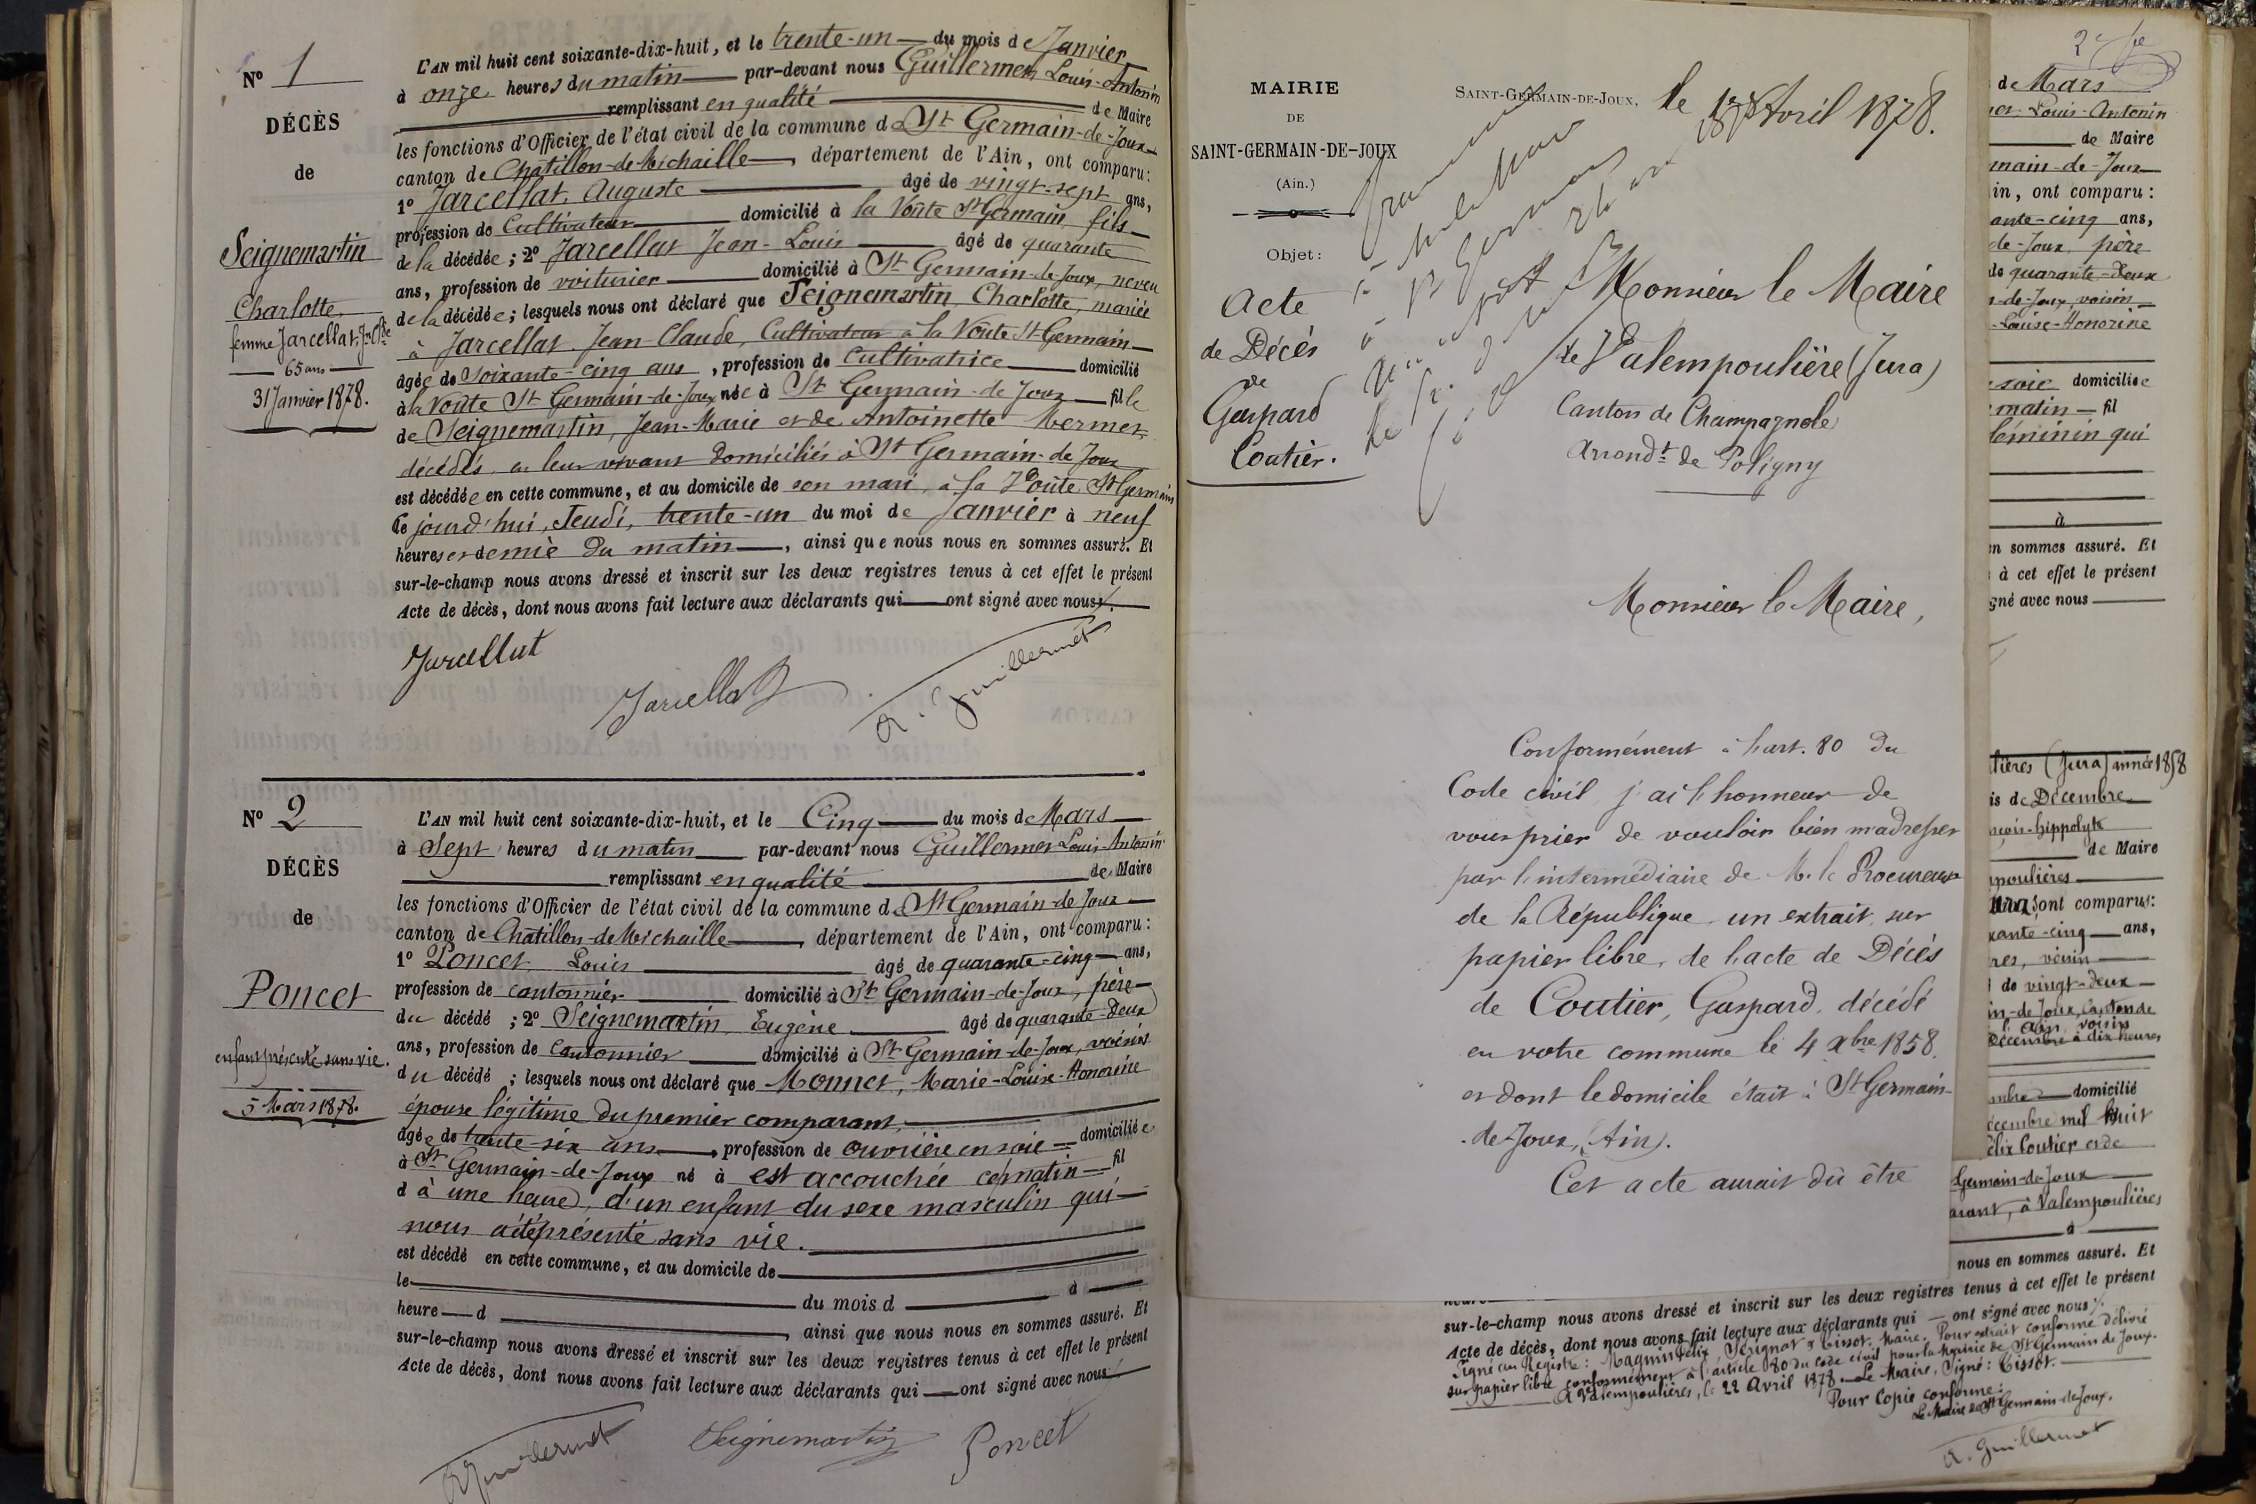 N° 1
DÉCÈS
de
Seignemartin
Charlotte
femme Jarcellat, Jn Cde
65 ans
31 Janvier 1878.
L'AN mil huit cent soixante-dix-huit, et le trente-un du mois de Janvier
à onze heures du matin par-devant nous Guillermet Louis-Antonin
remplissant en qualité de Maire
les fonctions d'Officier de l'état civil de la commune de St Germain-de-Joux
canton de Chatillon-de-Michaille, département de l'Ain, ont comparu:
1° Jarcellat, Auguste âgé de vingt-sept ans,
profession de Cultivateur domicilié à la Voûte St Germain, fils
de la décédée; 2° Jarcellat Jean-Louis âgé de quarante
ans, profession de voiturier domicilié à St Germain-de-Joux, neveu
de la décédée; lesquels nous ont déclaré que Seignemartin, Charlotte, mariée
à Jarcellat Jean-Claude, Cultivateur à la Voute St Germain
âgée de Soixante-cinq ans, profession de Cultivatrice domicilié
à la Voute St Germain-de-Joux née à St Germain-de Joux fille
de Seignemartin, Jean-Marie et de Antoinette Mermet,
décédés, en leur vivant domiciliés à St Germain-de Joux
est décédée en cette commune, et au domicile de son mari, à la Voûte St Germain
ce jourd'hui, Jeudi, trente-un du moi de Janvier à neuf
heures et demie du matin, ainsi que nous nous en sommes assuré. Et
sur-le-champ nous avons dressé et inscrit sur les deux registres tenus à cet effet le présent
Acte de décès, dont nous avons fait lecture aux déclarants qui ont signé avec nous.
Jarcellat
Jarcellat
A. Guillermet
N° 2
DÉCÈS
de
Poncet
enfant présenté sans vie.
5 Mars 1878.
L'AN mil huit cent soixante-dix-huit, et le Cinq du mois de Mars
à Sept heures du matin par-devant nous Guillermet Louis-Antonin
remplissant en qualité de Maire
les fonctions d'Officier de l'état civil de la commune de St Germain-de Joux
canton de Chatillon-de Michaille, département de l'Ain, ont comparu:
1° Poncet, Louis âgé de quarante-cinq ans,
profession de cantonnier domicilié à St Germain-de-Joux, père
du décédé; 2° Seignemartin Eugène âgé de quarante-deux
ans, profession de Cantonnier domicilié à St Germain-de-Joux, voisin
du décédé; lesquels nous ont déclaré que Monnet, Marie-Louise-Honorine
épouse légitime du premier comparant,
âgée de trente-six ans, profession de ouvrière en soie domiciliée
à St Germain-de-Joux né à est accouchée ce matin fil
d à une heure, d'un enfant du sexe masculin qui
nous a été présenté sans vie.
est décédé en cette commune, et au domicile de
le du mois d à
heure d, ainsi que nous nous en sommes assuré. Et
sur-le-champ nous avons dressé et inscrit sur les deux registres tenus à cet effet le présent
Acte de décès, dont nous avons fait lecture aux déclarants qui ont signé avec nous
A. Guillermet
Seignemartin
Poncet
MAIRIE
DE
SAINT-GERMAIN-DE-JOUX
(Ain.)
Objet:
Acte
de Décès
de
Gaspard
Coutier.
SAINT-GERMAIN-DE-JOUX, le Avril 1878.
Monsieur le Maire
de Valempoulière (Jura)
Canton de Champagnole
Arrondt de Poligny
Monsieur le Maire,
Conformément à l'art. 80 du
Code civil j'ai l'honneur de
vous prier de vouloir bien m'adresser
par l'intermédiaire de M. le Procureur
de la République un extrait, sur
papier libre, de l'acte de Décès
de Coutier, Gaspard, décédé
en votre commune le 4 Xbre 1858.
et dont le domicile était à St Germain-
de-Joux, (Ain).
Cet acte aurait dû être
2e
de Mars
Louis-Antonin
de Maire
main-de-Joux
in, ont comparu:
ante-cinq ans,
de-Joux, père
de quarante-deux
n-de-Joux, voisin
-Louise-Honorine
soie domiciliée
matin fil
féminin qui
à
en sommes assuré. Et
à cet effet le présent
gné avec nous
lières (Jura) année 1858
is de Décembre
Hippolyte
de Maire
mpoulières
Jura, ont comparu:
xante-cinq ans,
res, voisin
de vingt-deux
in-de Joux, Canton de
l'Ain, voisin
Décembre à dix heures
domicilié
écembre mil huit
élix Coutier et de
Germain-de-Joux
arant, à Valempoulières
à
nous en sommes assuré. Et
sur-le-champ nous avons dressé et inscrit sur les deux registres tenus à cet effet le présent
Acte de décès, dont nous avons fait lecture aux déclarants qui ont signé avec nous.
Signé au Registre: Magnin Félix, Sérignat & Tissot, Maire. Pour extrait conforme délivré
sur papier libre conformément à l'article 80 du code civil pour la Mairie de St Germain de Joux.
A Valempoulières, le 22 Avril 1878. Le Maire, Signé: Tissot.
Pour Copie conforme:
Le Maire de St Germain-de-Joux.
A. Guillermet